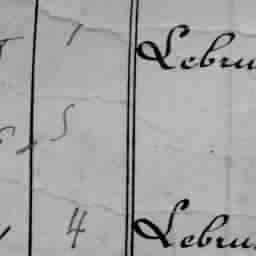 1 Lebru
5
4 Lebru